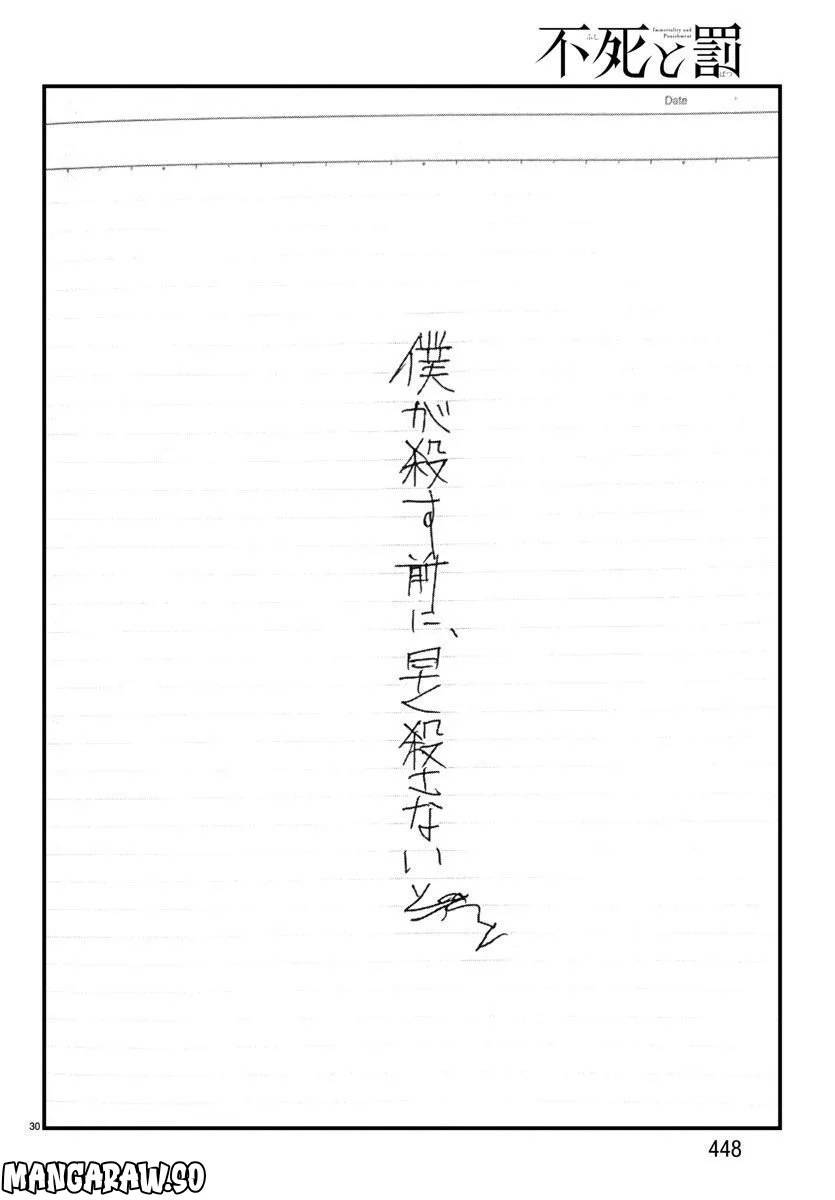 不死と罰
ふし
ばつ
Immortality and
Punishment
Date
僕が殺す前に、早く殺さないと
30
448
MANGARAW.SO